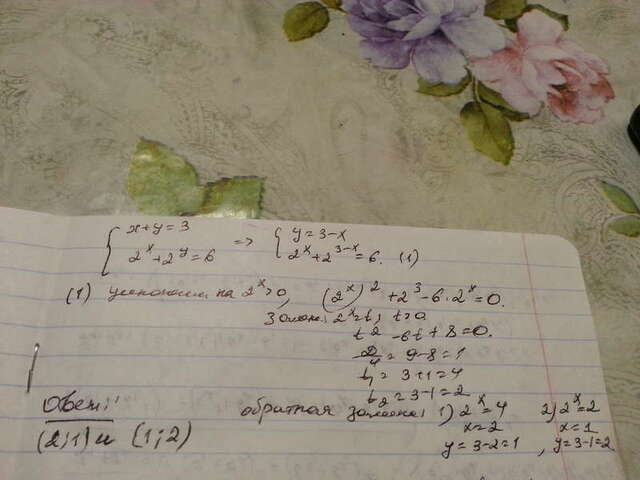 { x+y=3 => { y=3-x
{ 2^x+2^y=6 { 2^x+2^{3-x}=6. (1)
(1) умножим на 2^x>0, (2^x)^2+2^3-6·2^x=0.
Замена: 2^x=t, t>0
t^2-6t+8=0.
D/4=9-8=1
t_1=3+1=4
t_2=3-1=2
Ответ: обратная замена: 1) 2^x=4 2) 2^x=2
x=2 x=1
(2;1) и (1;2) y=3-2=1, y=3-1=2